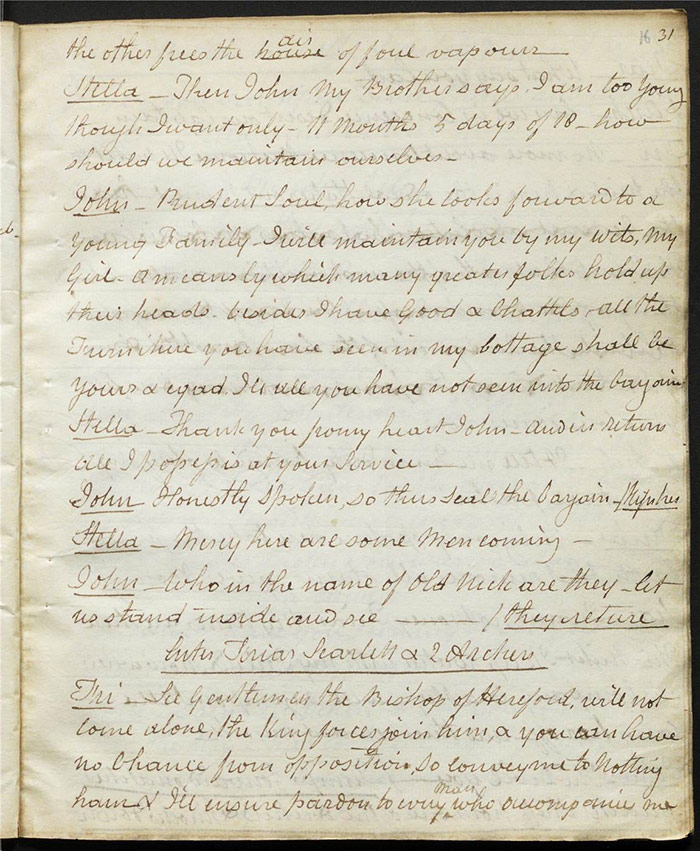 16 31
the other frees the house air of foul vapour
Stella - Then John My Brother says I am too Young
though I want only - 11 Months 5 days of 18 - how
should we maintain ourselves -
John - Prudent Soul, how she looks forward to a
Young Family - I will maintain you by my wits, My
Girl - a means by which many greater folks hold up
their heads - besides I have Good & Chattels - all the
Furniture you have seen in my Cottage shall be
yours & egad I'll all you have not seen into the bargain
Stella - Thank you from my heart John - and in return
all I possess is at your Service -
John Honestly Spoken, so thus seal the bargain - /Kisses her
Stella - Mercy here are some Men coming -
John - Who in the name of Old Nick are they - let
us stand inside and see - /they retire
Enter Friar Scarlett & 2 Archers
Fri - See Gentlemen the Bishop of Hereford, will not
come alone, the King forces join him, & you can have
no Chance from opposition, so convey me to Notting
ham & I'll ensure pardon to every man who accompanies me